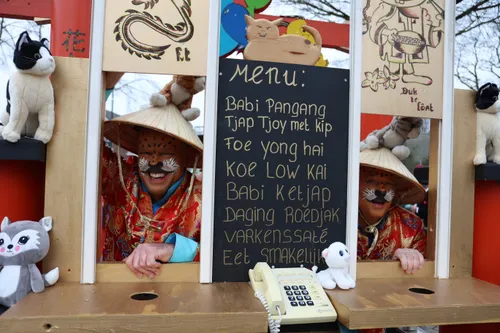 花
E.t
MENU:
Babi Pangang
Tjap Tjoy met kip
Foe yong hai
KOE LOW KAI
Babi Ketjap
Daging ROEDJAK
VARKENSSATÉ
Eet SMAKELIJK